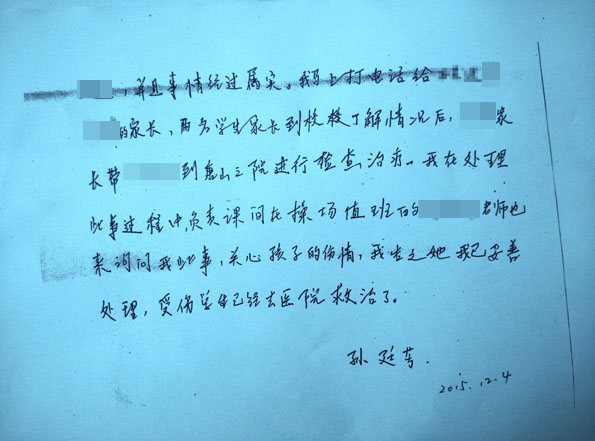 ，并且事情经过属实。我马上打电话给
的家长，两名学生家长到校核了解情况后，家
长带到唐山三院进行检查治疗。我在处理
此事过程中,负责课间在操场值班的老师也
来询问我此事，关心孩子的伤情，我告之她我已妥善
处理，受伤学生已经去医院救治了。
孙廷芳.
2015.12.4